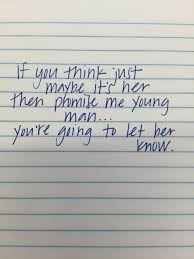 If you think just
maybe it's her
then promise me young
man...
you're going to let her
know.